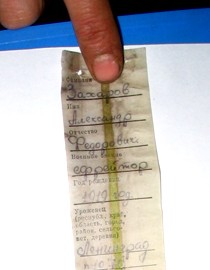 Фамилия
Захаров
Имя
Александр
Отчество
Федорович
Военное звание
ефрейтор
Год рождения
1919 год
Уроженец
(республ., край,
область, город,
район, сельсо-
вет, деревня)
Ленинград